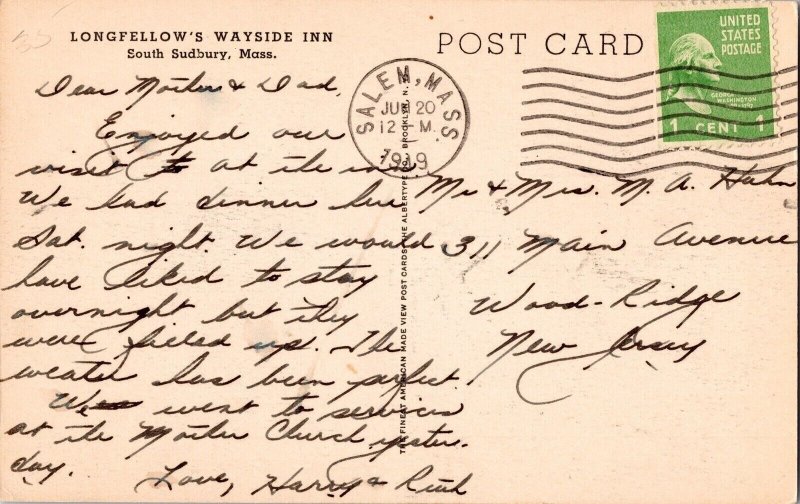 LONGFELLOW'S WAYSIDE INN
South Sudbury, Mass.
POST CARD
UNITED
STATES
POSTAGE
GEORGE
WASHINGTON
1 CENT 1
SALEM, MASS
JUN 20
12 - M
Dear Mother & Dad,
Enjoyed our
visit to at the inn
We had dinner here
Sat. night. We would
have liked to stay
overnight but they
were filled up. The
weater has been perfect.
We went to services
at the Mother Church yester-
day.
Love, Harry & Ruth
Mr & Mrs. M. A. Hahn
311 Main Avenue
Wood-Ridge
New Jersey
THE FINEST AMERICAN MADE VIEW POST CARDS THE ALBERTYPE CO., BROOKLYN, N.